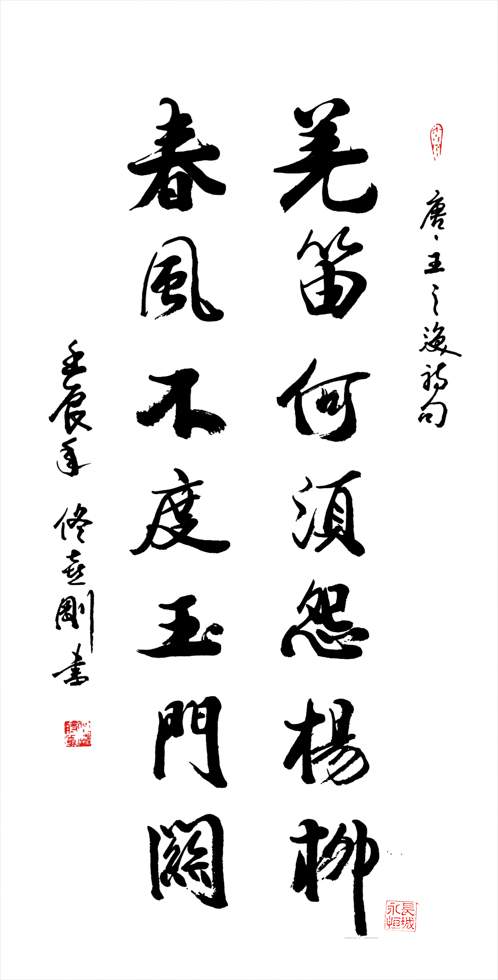 唐、王之渙詩句
羌笛何須怨楊柳
春風不度玉門關
壬辰年 佟喜剛書
長城
永恒